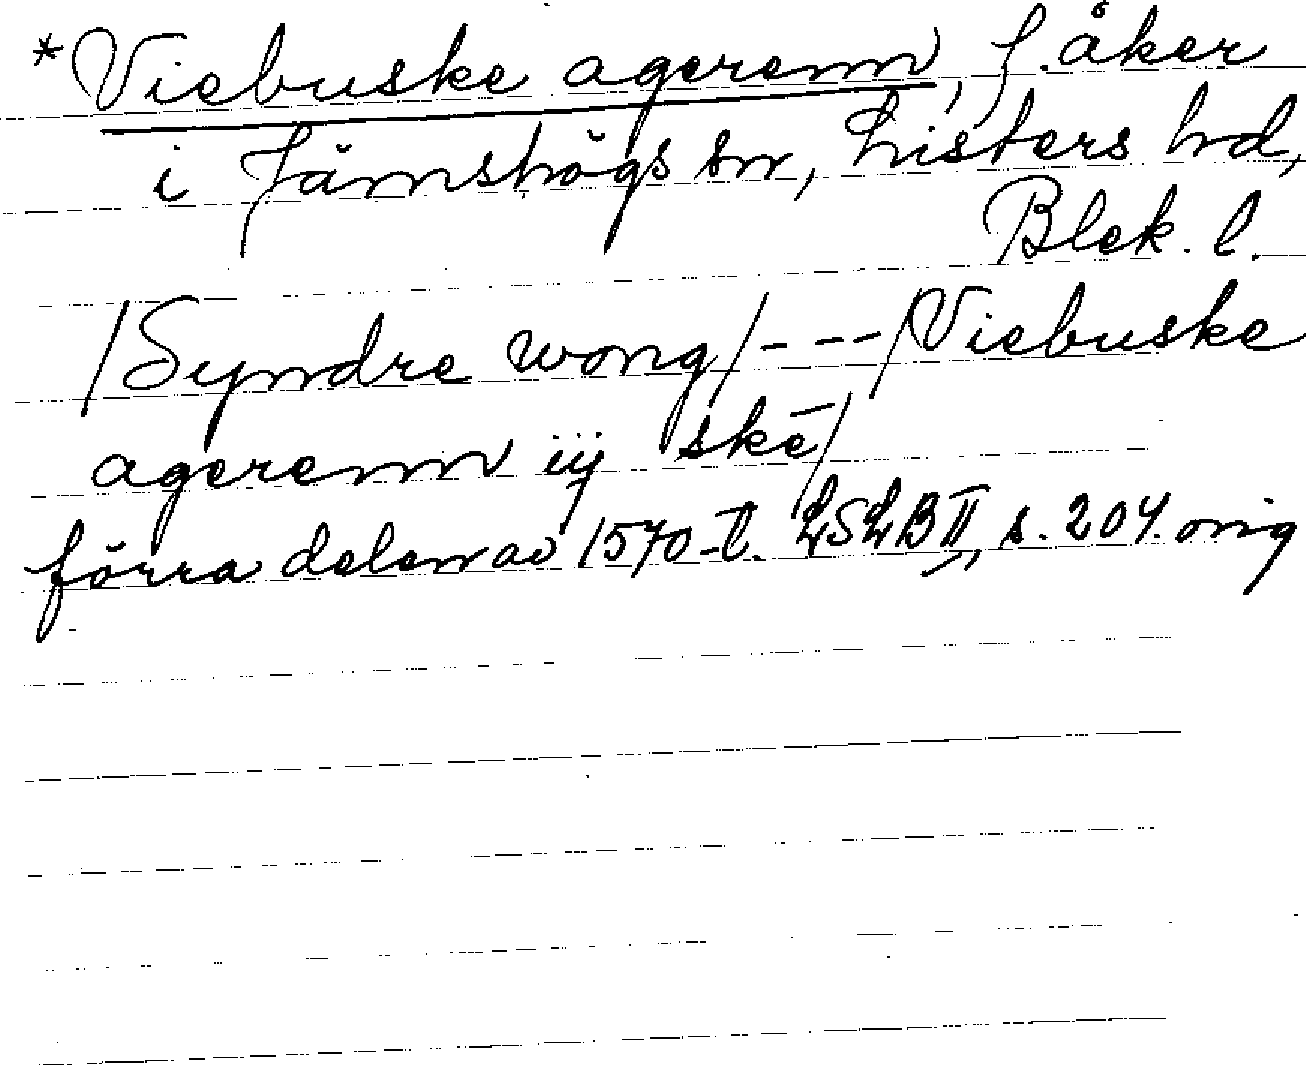 *Viebuske agerenn, f. åker
i Jämshögs sn, Listers hd,
Blek. l.
/Syndre wong/ - - - /Viebuske
agerenn iij skē/
förra delen av 1570-t. LSLB II, s. 204. orig